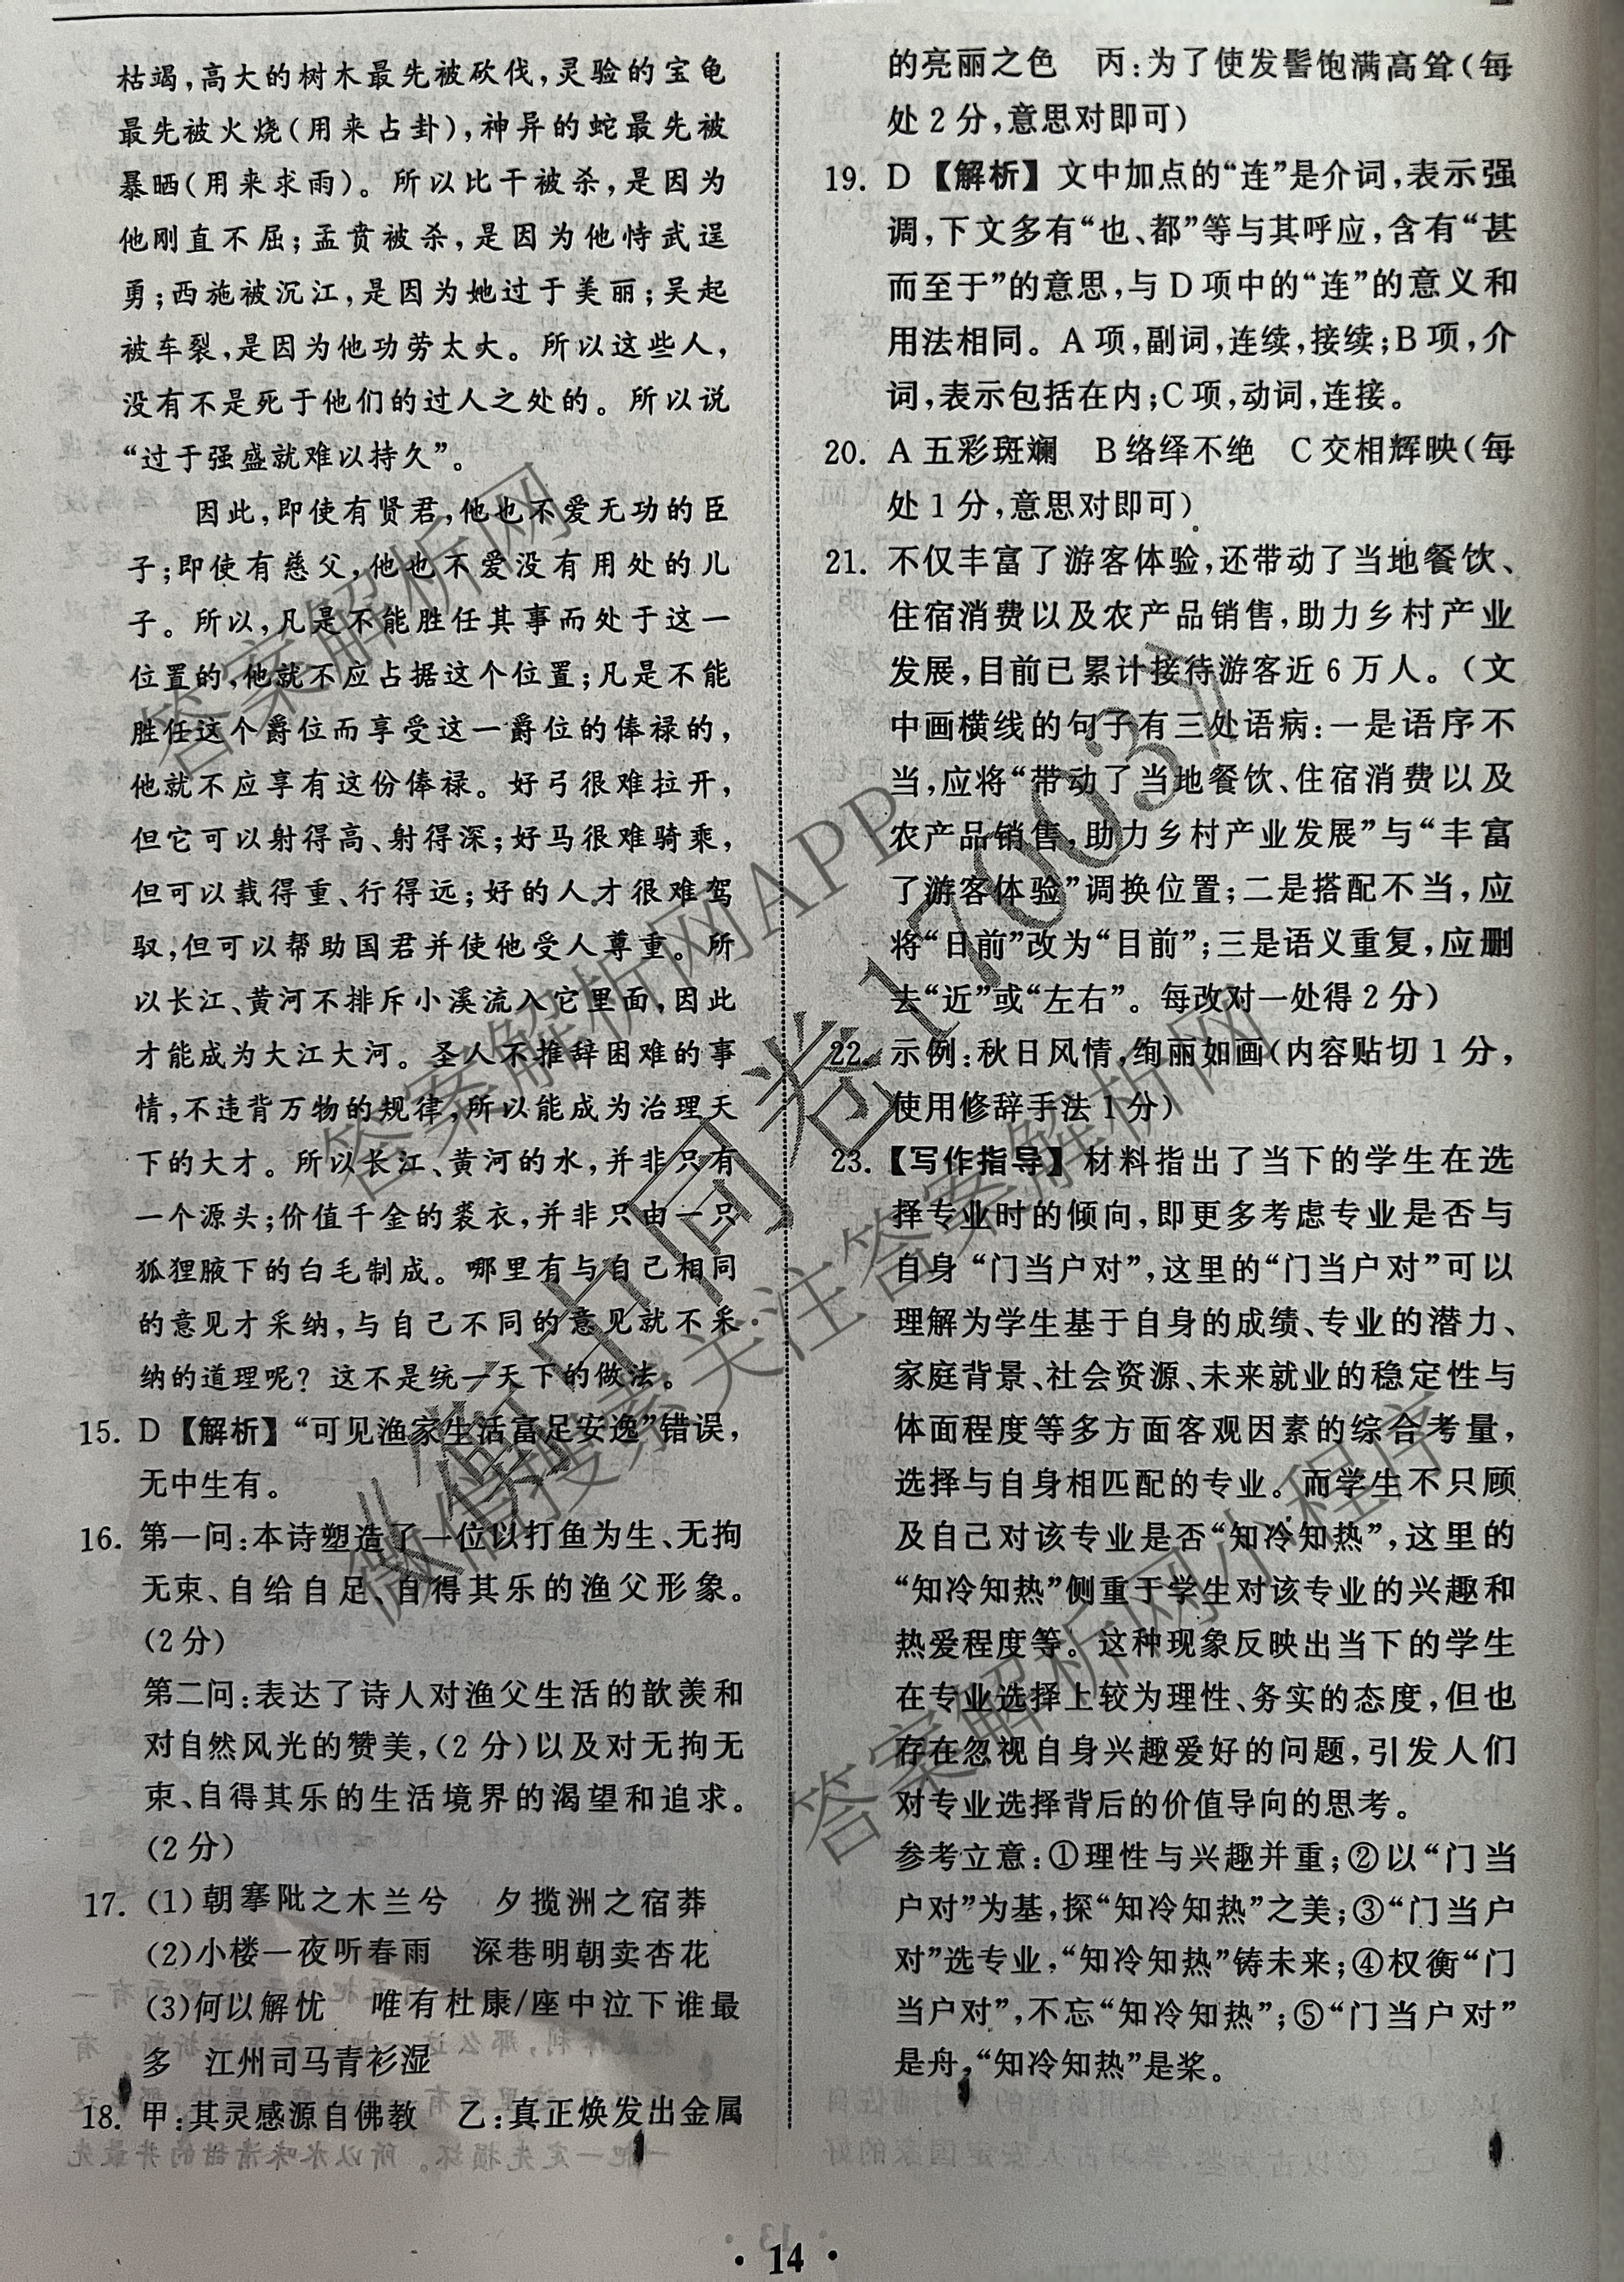 枯竭,高大的树木最先被砍伐,灵验的宝龟
最先被火烧(用来占卦),神异的蛇最先被
暴晒(用来求雨)。所以比干被杀,是因为
他刚直不屈;孟贲被杀,是因为他恃武逞
勇;西施被沉江,是因为她过于美丽;吴起
被车裂,是因为他功劳太大。所以这些人,
没有不是死于他们的过人之处的。所以说
“过于强盛就难以持久”。
因此,即使有贤君,他也不爱无功的臣
子;即使有慈父,他也不爱没有用处的儿
子。所以,凡是不能胜任其事而处于这一
位置的,他就不应占据这个位置;凡是不能
胜任这个爵位而享受这一爵位的俸禄的,
他就不应享有这份俸禄。好弓很难拉开,
但它可以射得高、射得深;好马很难骑乘,
但可以载得重、行得远;好的人才很难驾
驭,但可以帮助国君并使他受人尊重。所
以长江、黄河不排斥小溪流入它里面,因此
才能成为大江大河。圣人不推辞困难的事
情,不违背万物的规律,所以能成为治理天
下的大才。所以长江、黄河的水,并非只有
一个源头;价值千金的裘衣,并非只由一只
狐狸腋下的白毛制成。哪里有与自己相同
的意见才采纳,与自己不同的意见就不采
纳的道理呢?这不是统一天下的做法。
15. D【解析】“可见渔家生活富足安逸”错误,
无中生有。
16. 第一问:本诗塑造了一位以打鱼为生、无拘
无束、自给自足、自得其乐的渔父形象。
(2分)
第二问:表达了诗人对渔父生活的歆羡和
对自然风光的赞美,(2分)以及对无拘无
束、自得其乐的生活境界的渴望和追求。
(2分)
17. (1)朝搴阰之木兰兮 夕揽洲之宿莽
(2)小楼一夜听春雨 深巷明朝卖杏花
(3)何以解忧 唯有杜康/座中泣下谁最
多 江州司马青衫湿
18. 甲:其灵感源自佛教 乙:真正焕发出金属
的亮丽之色 丙:为了使发髻饱满高耸(每
处2分,意思对即可)
19. D【解析】文中加点的“连”是介词,表示强
调,下文多有“也、都”等与其呼应,含有“甚
而至于”的意思,与D项中的“连”的意义和
用法相同。A项,副词,连续,接续;B项,介
词,表示包括在内;C项,动词,连接。
20. A五彩斑斓 B络绎不绝 C交相辉映(每
处1分,意思对即可)
21. 不仅丰富了游客体验,还带动了当地餐饮、
住宿消费以及农产品销售,助力乡村产业
发展,目前已累计接待游客近6万人。(文
中画横线的句子有三处语病:一是语序不
当,应将“带动了当地餐饮、住宿消费以及
农产品销售,助力乡村产业发展”与“丰富
了游客体验”调换位置;二是搭配不当,应
将“日前”改为“目前”;三是语义重复,应删
去“近”或“左右”。每改对一处得2分)
22. 示例:秋日风情,绚丽如画(内容贴切1分,
使用修辞手法1分)
23.【写作指导】材料指出了当下的学生在选
择专业时的倾向,即更多考虑专业是否与
自身“门当户对”,这里的“门当户对”可以
理解为学生基于自身的成绩、专业的潜力、
家庭背景、社会资源、未来就业的稳定性与
体面程度等多方面客观因素的综合考量,
选择与自身相匹配的专业。而学生不只顾
及自己对该专业是否“知冷知热”,这里的
“知冷知热”侧重于学生对该专业的兴趣和
热爱程度等。这种现象反映出当下的学生
在专业选择上较为理性、务实的态度,但也
存在忽视自身兴趣爱好的问题,引发人们
对专业选择背后的价值导向的思考。
参考立意:①理性与兴趣并重;②以“门当
户对”为基,探“知冷知热”之美;③“门当户
对”选专业,“知冷知热”铸未来;④权衡“门
当户对”,不忘“知冷知热”;⑤“门当户对”
是舟,“知冷知热”是桨。
·14·
答案解析网
答案解析网APP
微信搜索关注答案解析网
答案解析网小程序